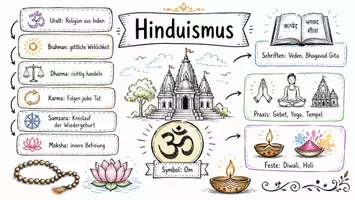 Hinduismus
Uralt: Religion aus Indien
Brahman: göttliche Wirklichkeit
Dharma: richtig handeln
Karma: Folgen jeder Tat
Samsara: Kreislauf
der Wiedergeburt
Moksha: innere Befreiung
ॐ
Symbol: Om
ऋग्वेद
भगवद
गीता
Schriften: Veden, Bhagavad Gita
Praxis: Gebet, Yoga, Tempel
Feste: Diwali, Holi